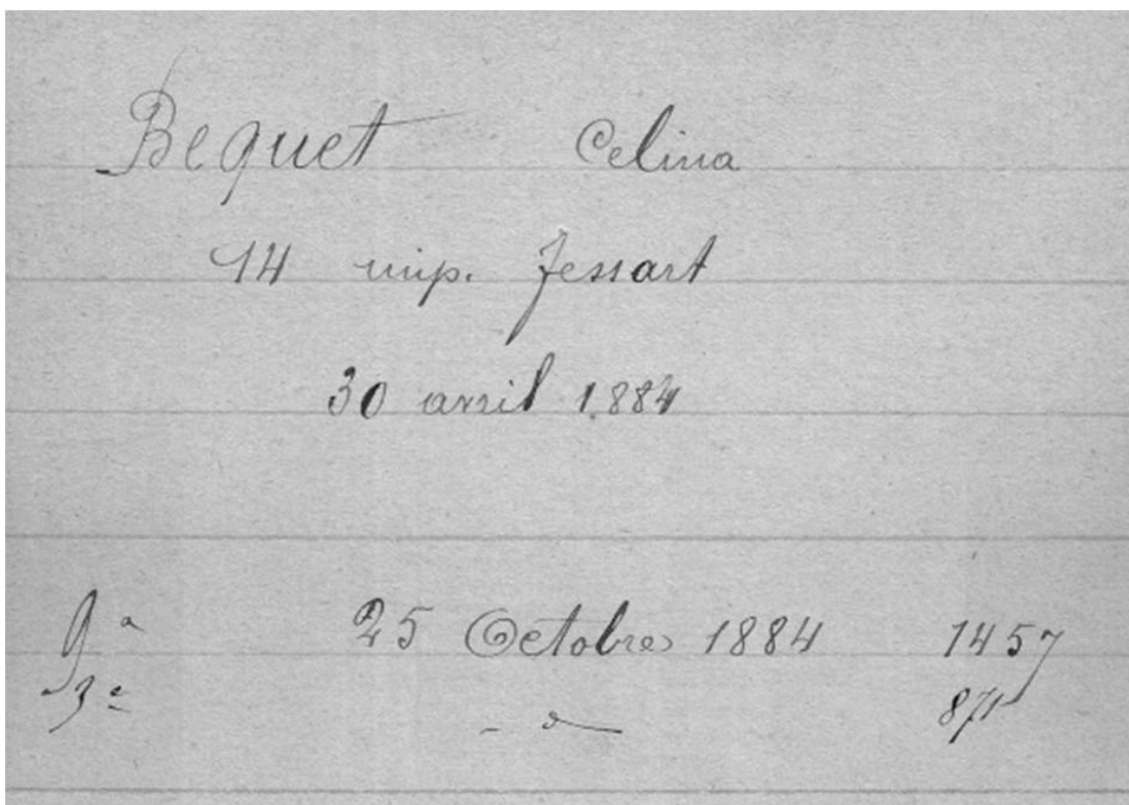 Bequet Celina
14 imp. Fessart
30 avril 1884
25 Octobre 1884 1457
3e - d° 871